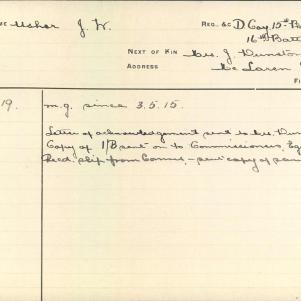 Usher J. W. REG. &C D Coy 15th B
16th Batt
NEXT OF KIN Mrs. J. Dunston
ADDRESS McLaren
19. m.g. since 3.5.15.
Letter of acknowledgement sent to Mrs. Dun
Copy of I/B sent on to Commissioners, Eg
Recd. slip from Comms, - sent copy of same